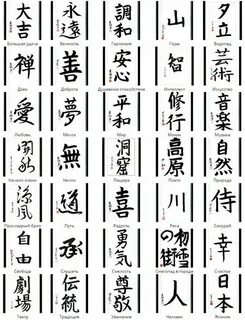 大吉 永遠 調和 山 夕立
Большая удача Вечность Гармония Горы Водопад
禅 善 安心 智 芸術
Дзен Доброта Душевное спокойствие Интеллект Искусство
愛 夢 平和 修行 音楽
Любовь Мечта Мир Музыка
無 洞窟 高原 自然
Начало осени Ничто Пещера Плато Природа
涼風 道 喜 川 侍
Прохладный бриз Путь Радость Река Самурай
自由 承 勇気 初雪の街 幸
Свобода Слушать Смелость Снегопад в городе Счастье
劇場 伝統 尊敬 人 日本
Театр Традиция Уважение Человек Япония